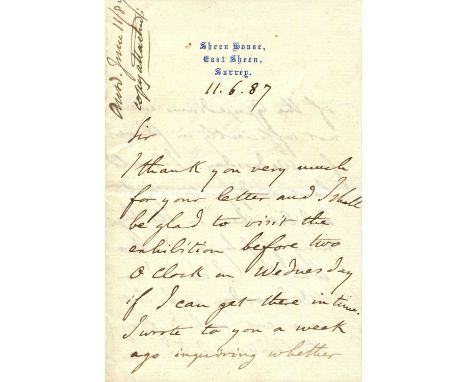 Answd. June 11/87
copy attached.
Sheen House,
East Sheen,
Surrey.
11.6.87
Sir
I thank you very much
for your letter and I shall
be glad to visit the
exhibition before two
O Clock on Wednesday
if I can get there in time.
I wrote to you a week
ago inquiring whether